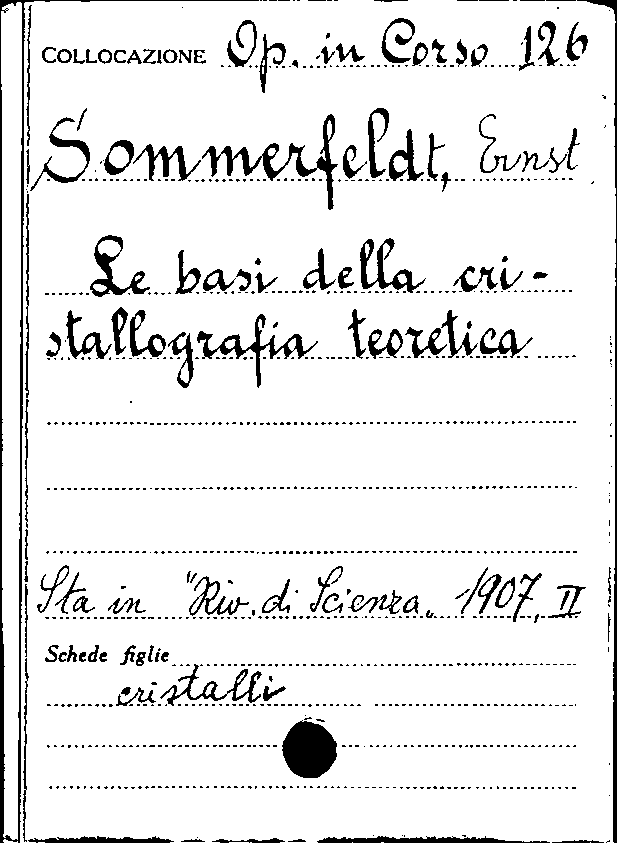 COLLOCAZIONE Op. in Corso 126
Sommerfeldt, Ernst
Le basi della cri-
stallografia teoretica
Sta in "Riv. di Scienza„ 1907, II
Schede figlie
cristalli